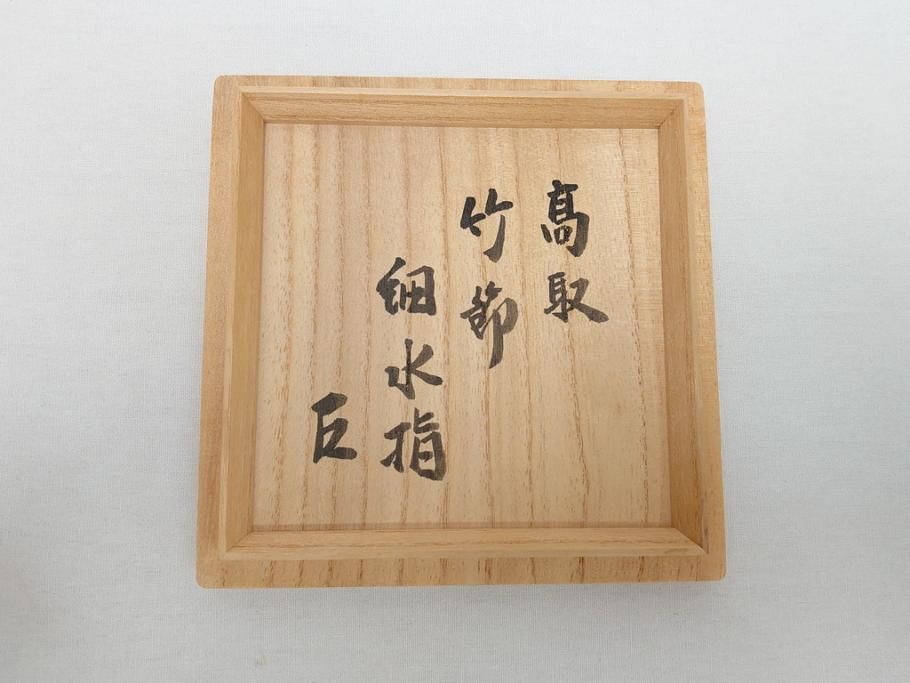 髙取
竹節
細水指
巨